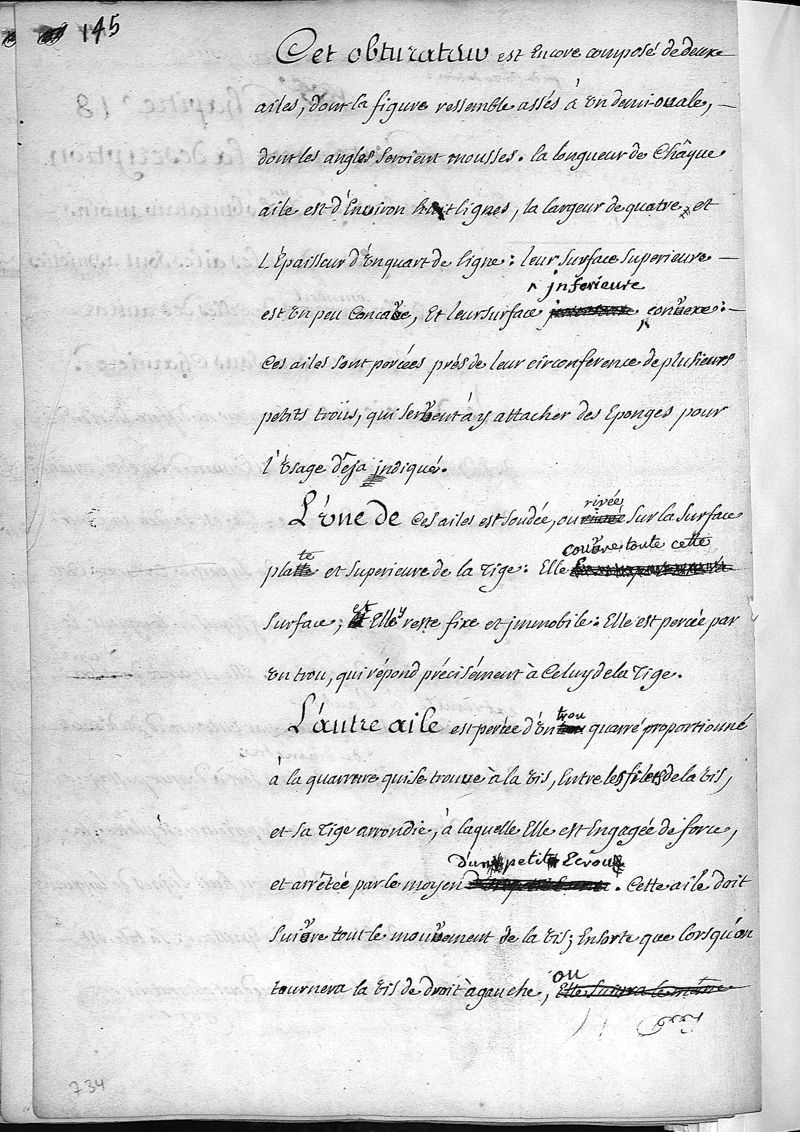 145
Cet obturateur est Encore composé de deux
ailes, dont la figure ressemble assés à Un demi-ovale,
dont les angles seroient mousses. la longueur de Châque
aile est d'Environ huit lignes, la largeur de quatre, et
L'Épaisseur d'Un quart de ligne: leur surface Superieure
inferieure
est Un peu Concave, Et leur surface convexe:
Ces ailes sont percées prés de leur circonference de plusieurs
petits troüs, qui servent à y attacher des Eponges pour
l'Usage déja indiqué.
rivée
L'Une de Ces ailes est soudée, ou sur la surface
couvre toute cette
platte et Superieure de la Tige: Elle
et y
surface; Elle reste fixe et immobile: Elle est percée par
Un trou, qui répond précisément à Celuy de la Tige.
trou
L'autre aile est percée d'Un quarré proportionné
à la quarrure qui se trouve à la Vis, Entre les filets de la Vis,
et sa Tige arrondie, à laquelle Elle est Engagée de force,
d'un petit Ecrou
et arrêtée par le moyen . Cette aile doit
suivre tout le mouvement de la Vis; Ensorte que lorsqu'on
ou
tournera la Vis de droit à gauche, Elle suivra le même
734